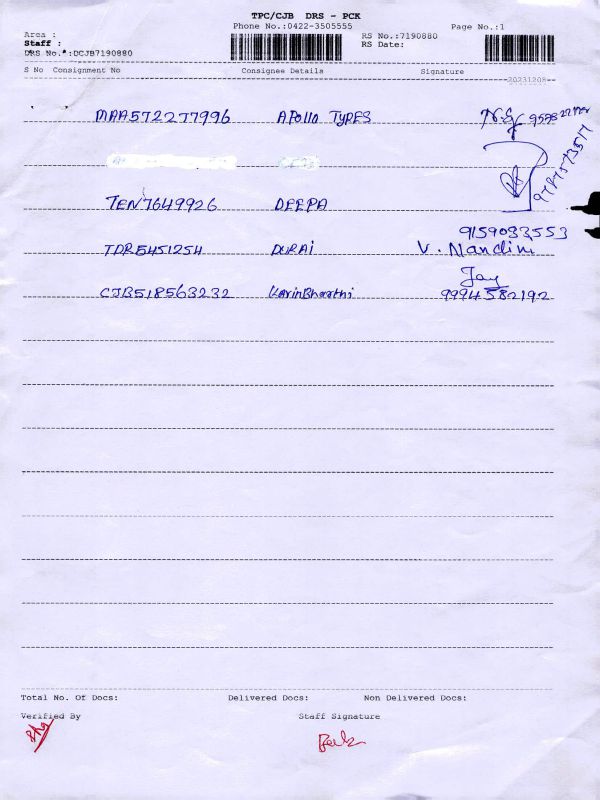 TPC/CJB DRS - PCK
Phone No.:0422-3505555 Page No.:1
Area : RS No.:7190880
Staff : RS Date:
DRS No.*:DCJB7190880
S No Consignment No Consignee Details Signature
20231208
MAA572277996 APOllO TYPES N.S
9787573517
TEN77649926 DEEPA
9159033553
TDR5451254 DURAI V. Nandini
Jay
CJB518563232 KavinBharthi 9994582192
Total No. Of Docs: Delivered Docs: Non Delivered Docs:
Verified By Staff Signature